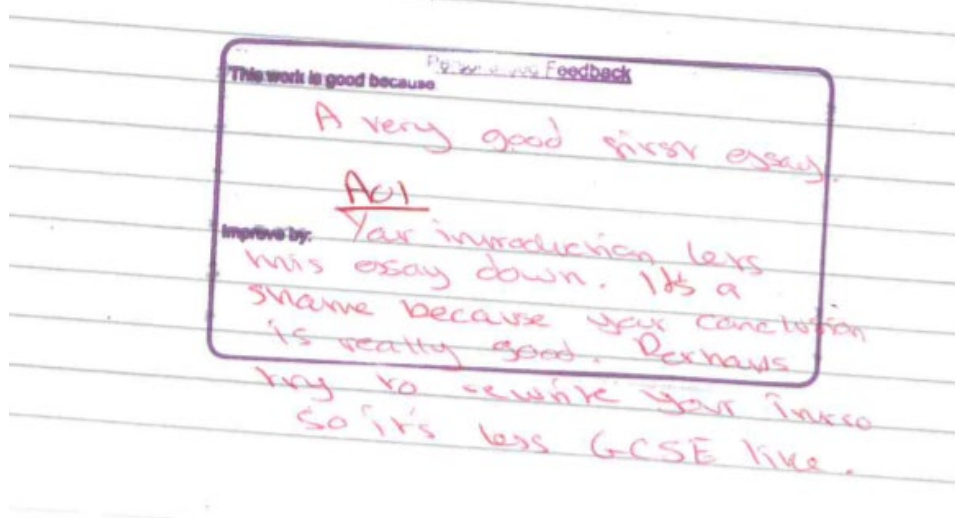 Feedback
This work is good because
A very good first essay.
AO1
Improve by: Your introduction lets
this essay down. It's a
shame because your conclusion
is really good. Perhaps
try to rewrite your intro
so it's less GCSE like.